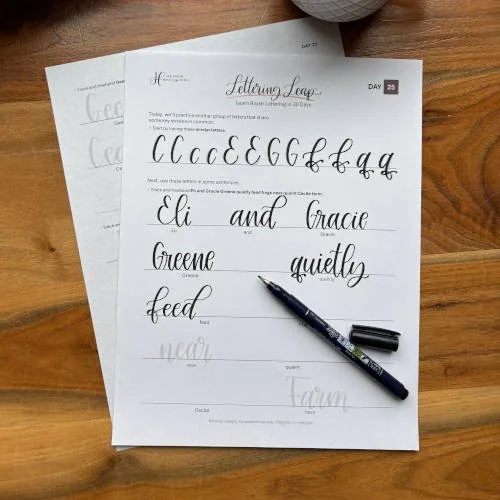 DAY 22
Lettering Leap
DAY 25
Learn Brush Lettering in 30 Days
Today, we'll practice another group of letters that share
some key strokes in common.
Start by tracing these similar letters.
C C c c E E G G f f q q
Next, use these letters in some sentences.
Trace and freehand Eli and Gracie Greene quietly feed frogs near quaint Cecile farm.
Eli and Gracie
Eli and Gracie
Greene quietly
Greene quietly
feed
feed
near
near quaint
Farm
Cecile farm